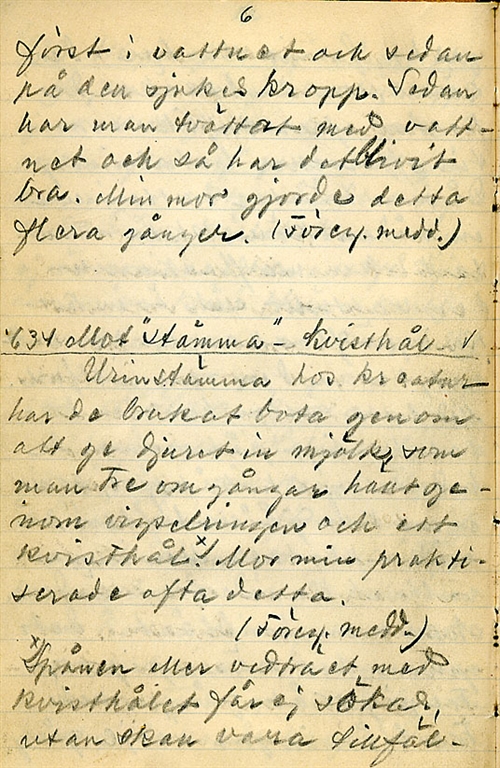 6
först i vattnet och sedan
på den sjukes kropp. Sedan
har man tvättat med vatt-
net och så har det blivit
bra. Min mor gjorde detta
flera gånger. (Föreg. medd.)
634 Mot "stämma" - kvisthål
Urinstämma hos kreatur
har de brukat bota genom
att ge djuret in mjölk, som
man tre om gångar haft ge-
nom vigselringen och ett
kvisthål.x) Mor min prakti-
serade ofta detta.
(Föreg. medd.)
x) Spånen eller vedträet med
kvisthålet får ej sökas,
utan skall vara tillfäl-